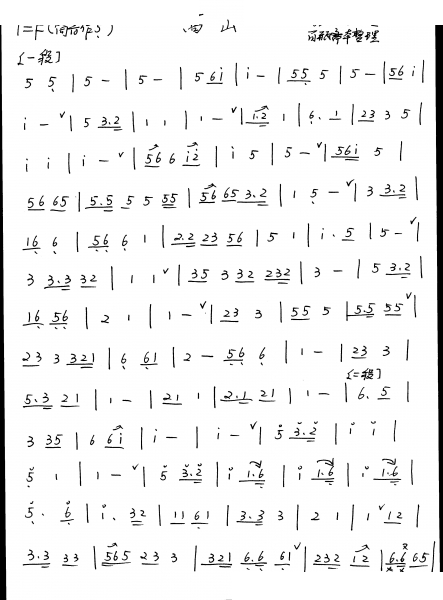 1=F
西山
[一段]
5 5 | 5 - | 5 - | 5 6i | i - | 55 5 | 5 - | 56 i |
i - ˅ | 5 3.2 | 1 1 | 1 - ˅ | 1.2 1 | 6. 1 | 23 3 5 |
i i | i - ˅ | 56 6 i2 | i 5 | 5 - ˅ | 56i 5 |
56 65 | 5.5 5 5 55 | 56 65 3.2 | 1 5 - ˅ | 3 3.2 |
16 6 | 56 6 1 | 2.2 23 56 | 5 1 | i. 5 | 5 - ˅ |
3 3.3 32 | 1 1 ˅ | 35 3 32 232 | 3 - | 5 3.2 |
16 56 | 2 1 | 1 - ˅ | 23 3 | 55 5 | 5.5 55 ˅ |
23 3 321 | 6 61 | 2 - 56 6 | 1 - | 23 3 |
[二段]
5.3 21 | 1 - | 21 1 | 2.1 21 | 1 - | 6. 5 |
3 35 | 6 6i | i - | i - ˅ | 5 3.2 | i i |
5 1 | 1 - ˅ | 5 3.2 | i 1.6 | i 1.6 | i 1.6 |
5. 6 | i. 32 | 11 61 | 3.3 3 | 2 1 | 1 ˅ 12 |
3.3 33 | 565 23 3 | 321 6.6 61 ˅ | 232 12 | 6.6 65 |